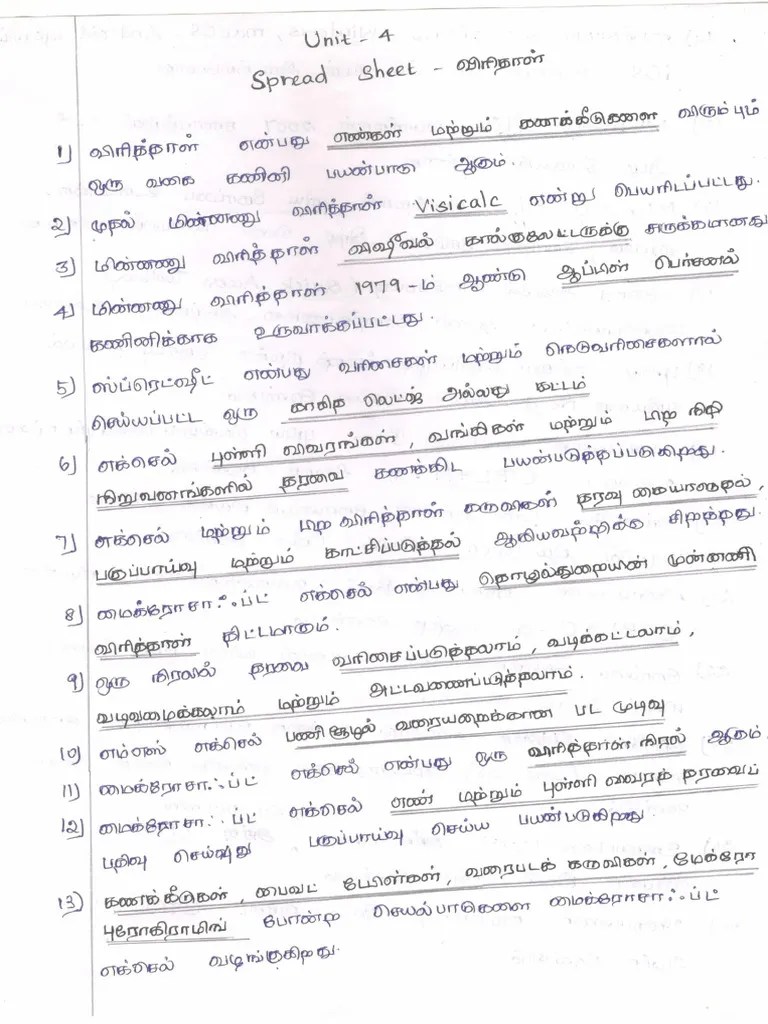 Unit - 4
Spread Sheet - விரிதாள்
1) விரித்தாள் என்பது எண்கள் மற்றும் கணக்கீடுகளை விரும்பும்
ஒரு வகை கணினி பயன்பாடு ஆகும்
2) முதல் மின்னணு விரித்தாள் Visicalc என்று பெயரிடப்பட்டது.
3) மின்னணு விரித்தாள் விஷீவல் கால்குலேட்டருக்கு சுருக்கமானது
4) மின்னணு விரித்தாள் 1979-ம் ஆண்டு ஆப்பிள் பெர்சனல்
கணினிக்காக உருவாக்கப்பட்டது.
5) ஸ்ப்ரெட்ஷீட் என்பது வரிசைகள் மற்றும் நெடுவரிசைகளால்
செய்யப்பட்ட ஒரு காகித லெட்ஜர் அல்லது கட்டம்
6) எக்செல் புள்ளி விவரங்கள், வங்கிகள் மற்றும் பிற நிதி
நிறுவனங்களில் தரவை கணக்கிட பயன்படுத்தப்படுகிறது.
7) எக்செல் மற்றும் பிற விரித்தாள் கருவிகள் தரவு கையாளுதல்,
பகுப்பாய்வு மற்றும் காட்சிப்படுத்தல் ஆகியவற்றிக்கு சிறந்தது.
8) மைக்ரோசாஃப்ட் எக்செல் என்பது தொழில்துறையின் முன்னணி
விரித்தாள் திட்டமாகும்.
9) ஒரு நிரலில் தரவை வரிசைப்படுத்தலாம், வடிக்கட்டலாம்,
வடிவமைக்கலாம் மற்றும் அட்டவணைப்படுத்தலாம்.
10) எம்எஸ் எக்செல் பணிசூழல் வரையறைக்கான பட முடிவு
11) மைக்ரோசாஃப்ட் எக்செல் என்பது ஒரு விரித்தாள் நிரல் ஆகும்.
12) மைக்ரோசாஃப்ட் எக்செல் எண் மற்றும் புள்ளி விவரத் தரவைப்
பதிவு செய்யது பகுப்பாய்வு செய்ய பயன்படுகிறது.
13) கணக்கீடுகள், பைவட் டேபிள்கள், வரைபடக் கருவிகள், மேக்ரோ
புரோகிராமிங் போன்ற செயல்பாடுகளை மைக்ரோசாஃப்ட்
எக்செல் வழங்குகிறது.